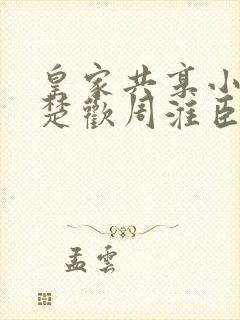 皇家共享小
楚歡周淮臣
孟雲